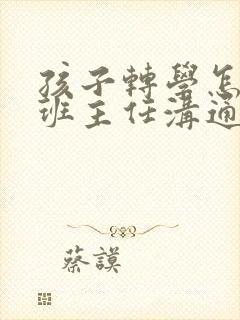 孩子轉學怎
班主任溝通
蔡謨